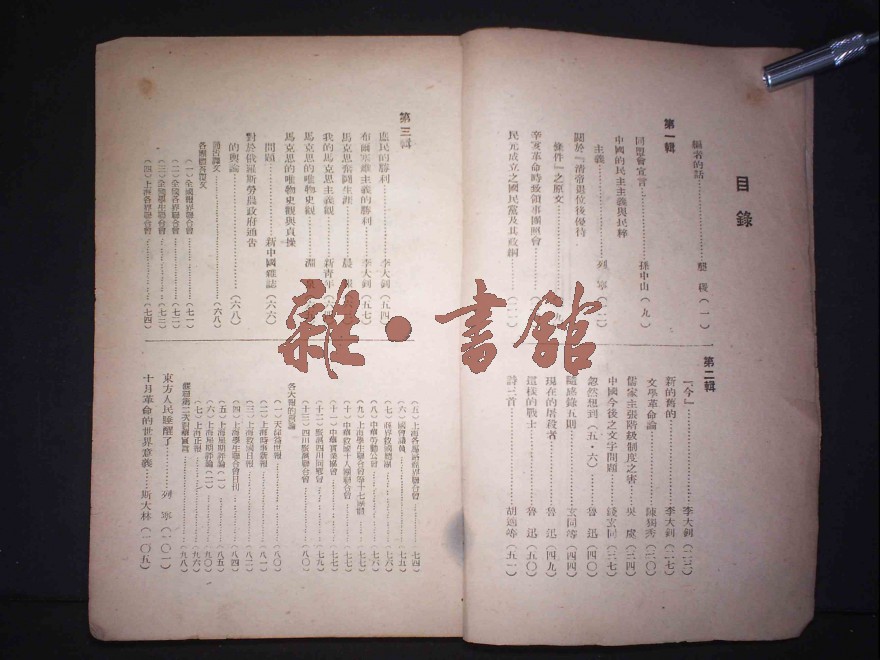 目錄
編者的話………
（一）
第一輯
同盟會宣言………孫中山（九）
中國的民主主義與民粹
主義………列寧
關於『清帝退位後優待
條件』之原文
辛亥革命時致領事團照會
民元成立之國民黨及其政綱
第二輯
『今』………李大釗（二三）
新的舊的………李大釗（二七）
文學革命論………陳獨秀（三〇）
儒家主張階級制度之害………吳虞（三四）
中國今後之文字問題………錢玄同（三七）
忽然想到（五・六）………魯迅（四〇）
隨感錄五則………玄同等（四四）
現在的屠殺者………魯迅（四九）
這樣的戰士………魯迅（五〇）
詩三首………胡適等（五一）
第三輯
庶民的勝利………李大釗（五四）
布爾塞維主義的勝利………李大釗（五七）
馬克思奮鬥生涯………晨報
我的馬克思主義觀………新青年
馬克思的唯物史觀………淵泉
馬克思的唯物史觀與貞操
問題………新中國雜誌（六六）
對於俄羅斯勞農政府通告
的輿論………（六八）
通告譯文………（六八）
各團體答覆文
（一）全國報界聯合會………（七一）
（二）全國各界聯合會………（七二）
（三）全國學生聯合會………（七三）
（四）上海各界聯合會………（七四）
（五）上海各馬路商界聯合會………（七四）
（六）國會議員………（七五）
（七）商界救國總團………（七六）
（八）中華勞動公會………（七六）
（九）上海學生聯合會等十七團體………（七七）
（十）中華救國十人團聯合會………（七七）
（十一）中華實業協會………（七七）
（十二）旅滬四川同鄉會………（七九）
（十三）四川旅滬聯合會………（八〇）
各大報的評論
（一）天津益世報………（八〇）
（二）上海時事新報………（八一）
（三）上海救國日報………（八二）
（四）上海學生聯合會日刊………（八四）
（五）上海星期評論（一）………（八五）
（六）上海星期評論（二）………（九〇）
（七）上海正報………（九六）
（九八）
東方人民睡醒了………列寧（一〇一）
十月革命的世界意義………斯大林（一〇五）
雜・書館